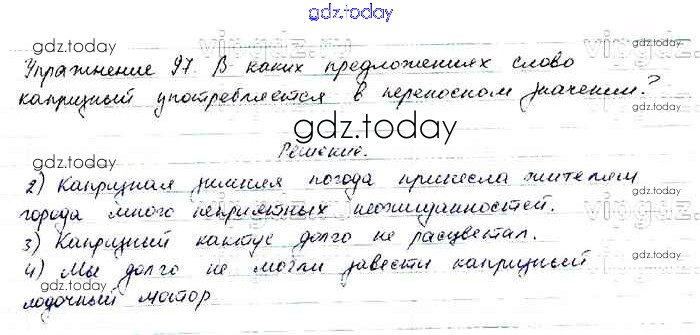 gdz.today
gdz.today vipgdz.ru gdz.today
Упражнение 97. В каких предложениях слово
капризный употребляется в переносном значении?
gdz.today
Решение.
gdz.today gdz.today
2) Капризная зимняя погода принесла жителям
города много неприятных неожиданностей.
3) Капризный кактус долго не расцветал.
4) Мы долго не могли завести капризный
лодочный мотор
gdz.today gdz.today